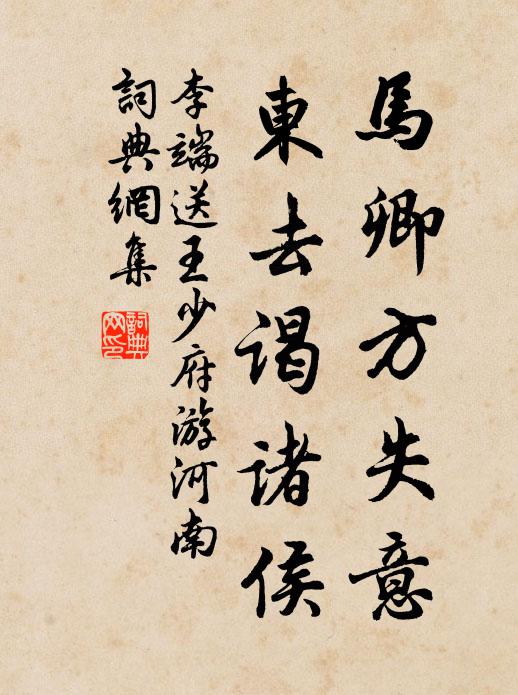 馬卿方失意
東去谒诸侯
李端送王少府游河南
詞典網集
詞典网印